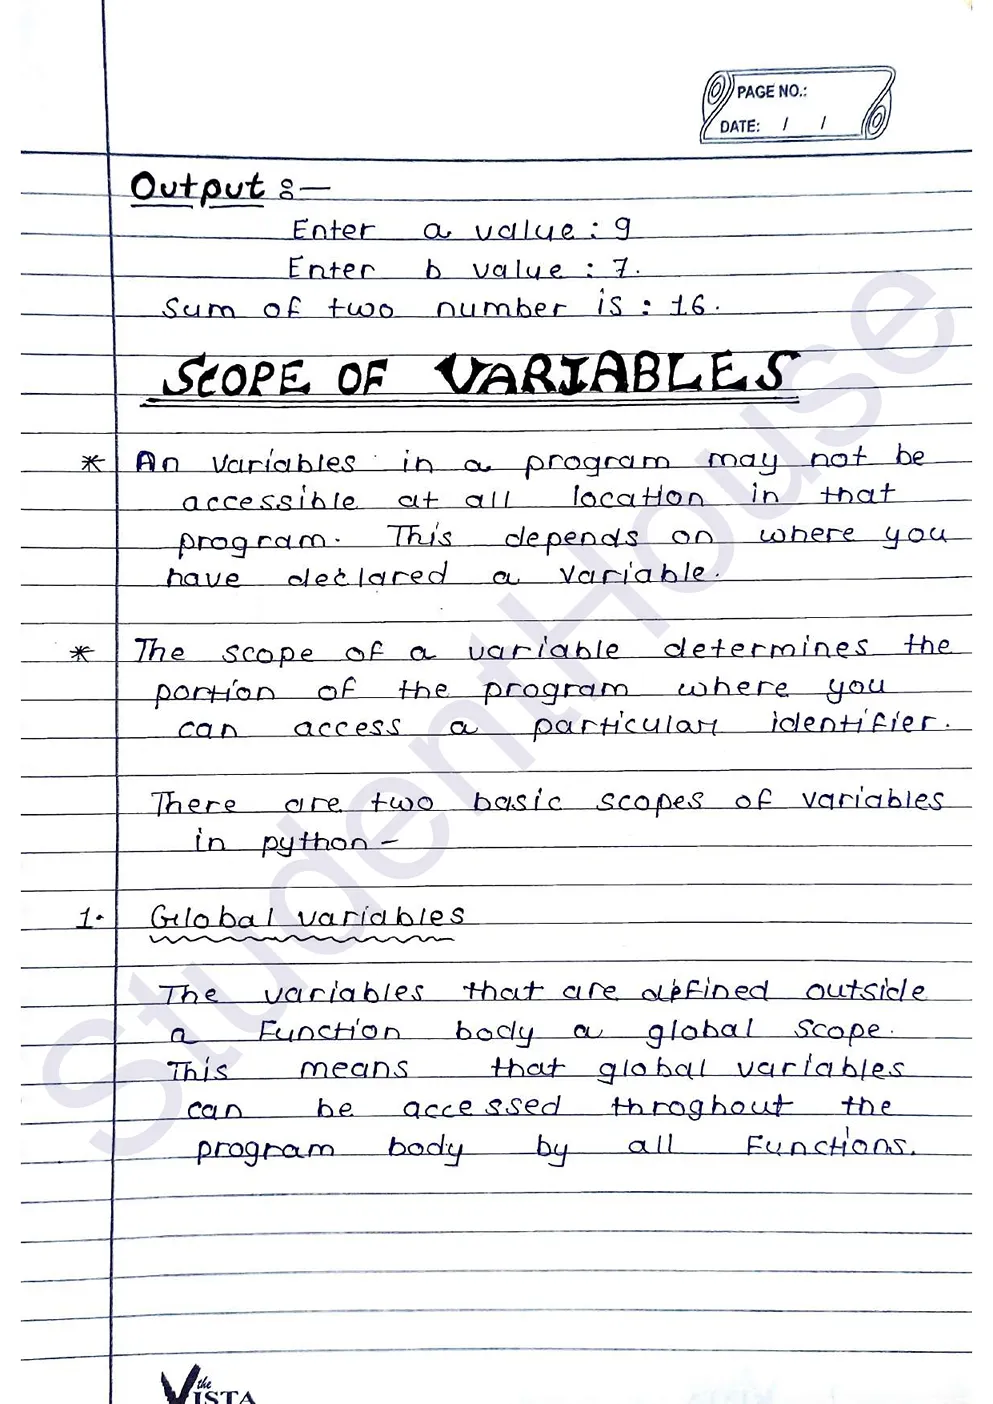 PAGE NO.:
DATE: / /
Output :—
Enter a value : 9
Enter b value : 7.
Sum of two number is : 16.
SCOPE OF VARIABLES
* An variables in a program may not be
accessible at all location in that
program. This depends on where you
have declared a variable.
* The scope of a variable determines the
portion of the program where you
can access a particular identifier.
There are two basic scopes of variables
in python –
1. Global variables
The variables that are defined outside
a Function body a global scope.
This means that global variables
can be accessed throghout the
program body by all Functions.
StudentHouse
the
VISTA